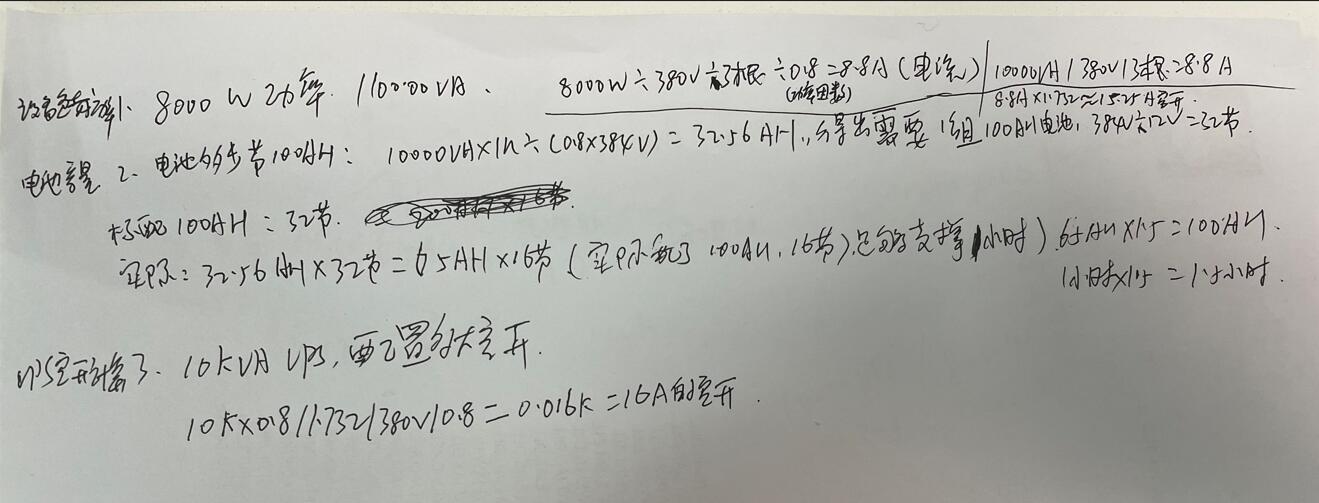 1、8000W功率. 10000VA、 8000W÷380V÷3根÷0.8=8.8A(电流) 10000VA/380V/3根=8.8A
(功率因数) 8.8A×1.732≈15.25A空开.
电池容量 2、电池多少节100AH: 10000VA×1h÷(0.8×384V)=32.56AH,得出需要1组100AH电池, 384V÷12V=32节.
标配100AH:32节.
实际:32.56AH×32节=65AH×16节(实际配了100AH,16节)足够支撑1小时). 65AH×1.5=100AH.
1小时×1.5=1.5小时.
3、10KVA UPS,配置多大空开.
10K×0.8/1.732/380V/0.8=0.016K=16A的空开.